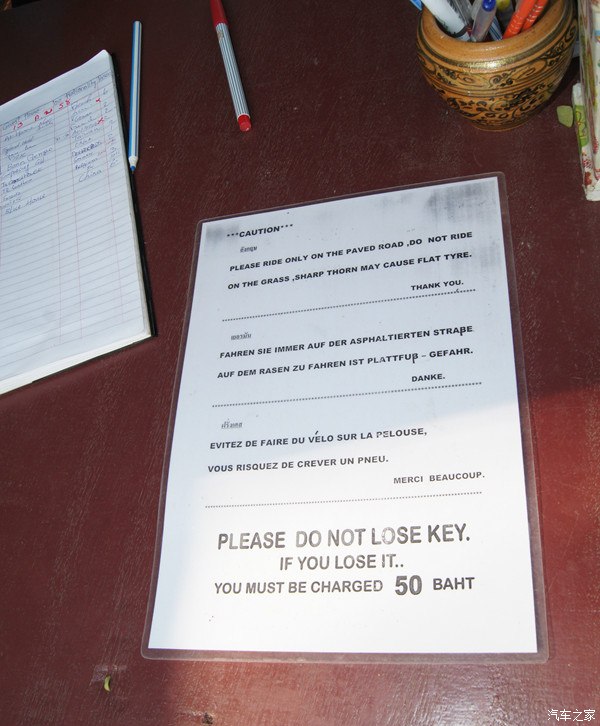 ***CAUTION***
อังกฤษ
PLEASE RIDE ONLY ON THE PAVED ROAD ,DO NOT RIDE
ON THE GRASS ,SHARP THORN MAY CAUSE FLAT TYRE.
THANK YOU.
เยอรมัน
FAHREN SIE IMMER AUF DER ASPHALTIERTEN STRAßE
AUF DEM RASEN ZU FAHREN IST PLATTFUß – GEFAHR.
DANKE.
ฝรั่งเศส
EVITEZ DE FAIRE DU VÉLO SUR LA PELOUSE,
VOUS RISQUEZ DE CREVER UN PNEU.
MERCI BEAUCOUP.
PLEASE DO NOT LOSE KEY.
IF YOU LOSE IT..
YOU MUST BE CHARGED 50 BAHT
China
汽车之家